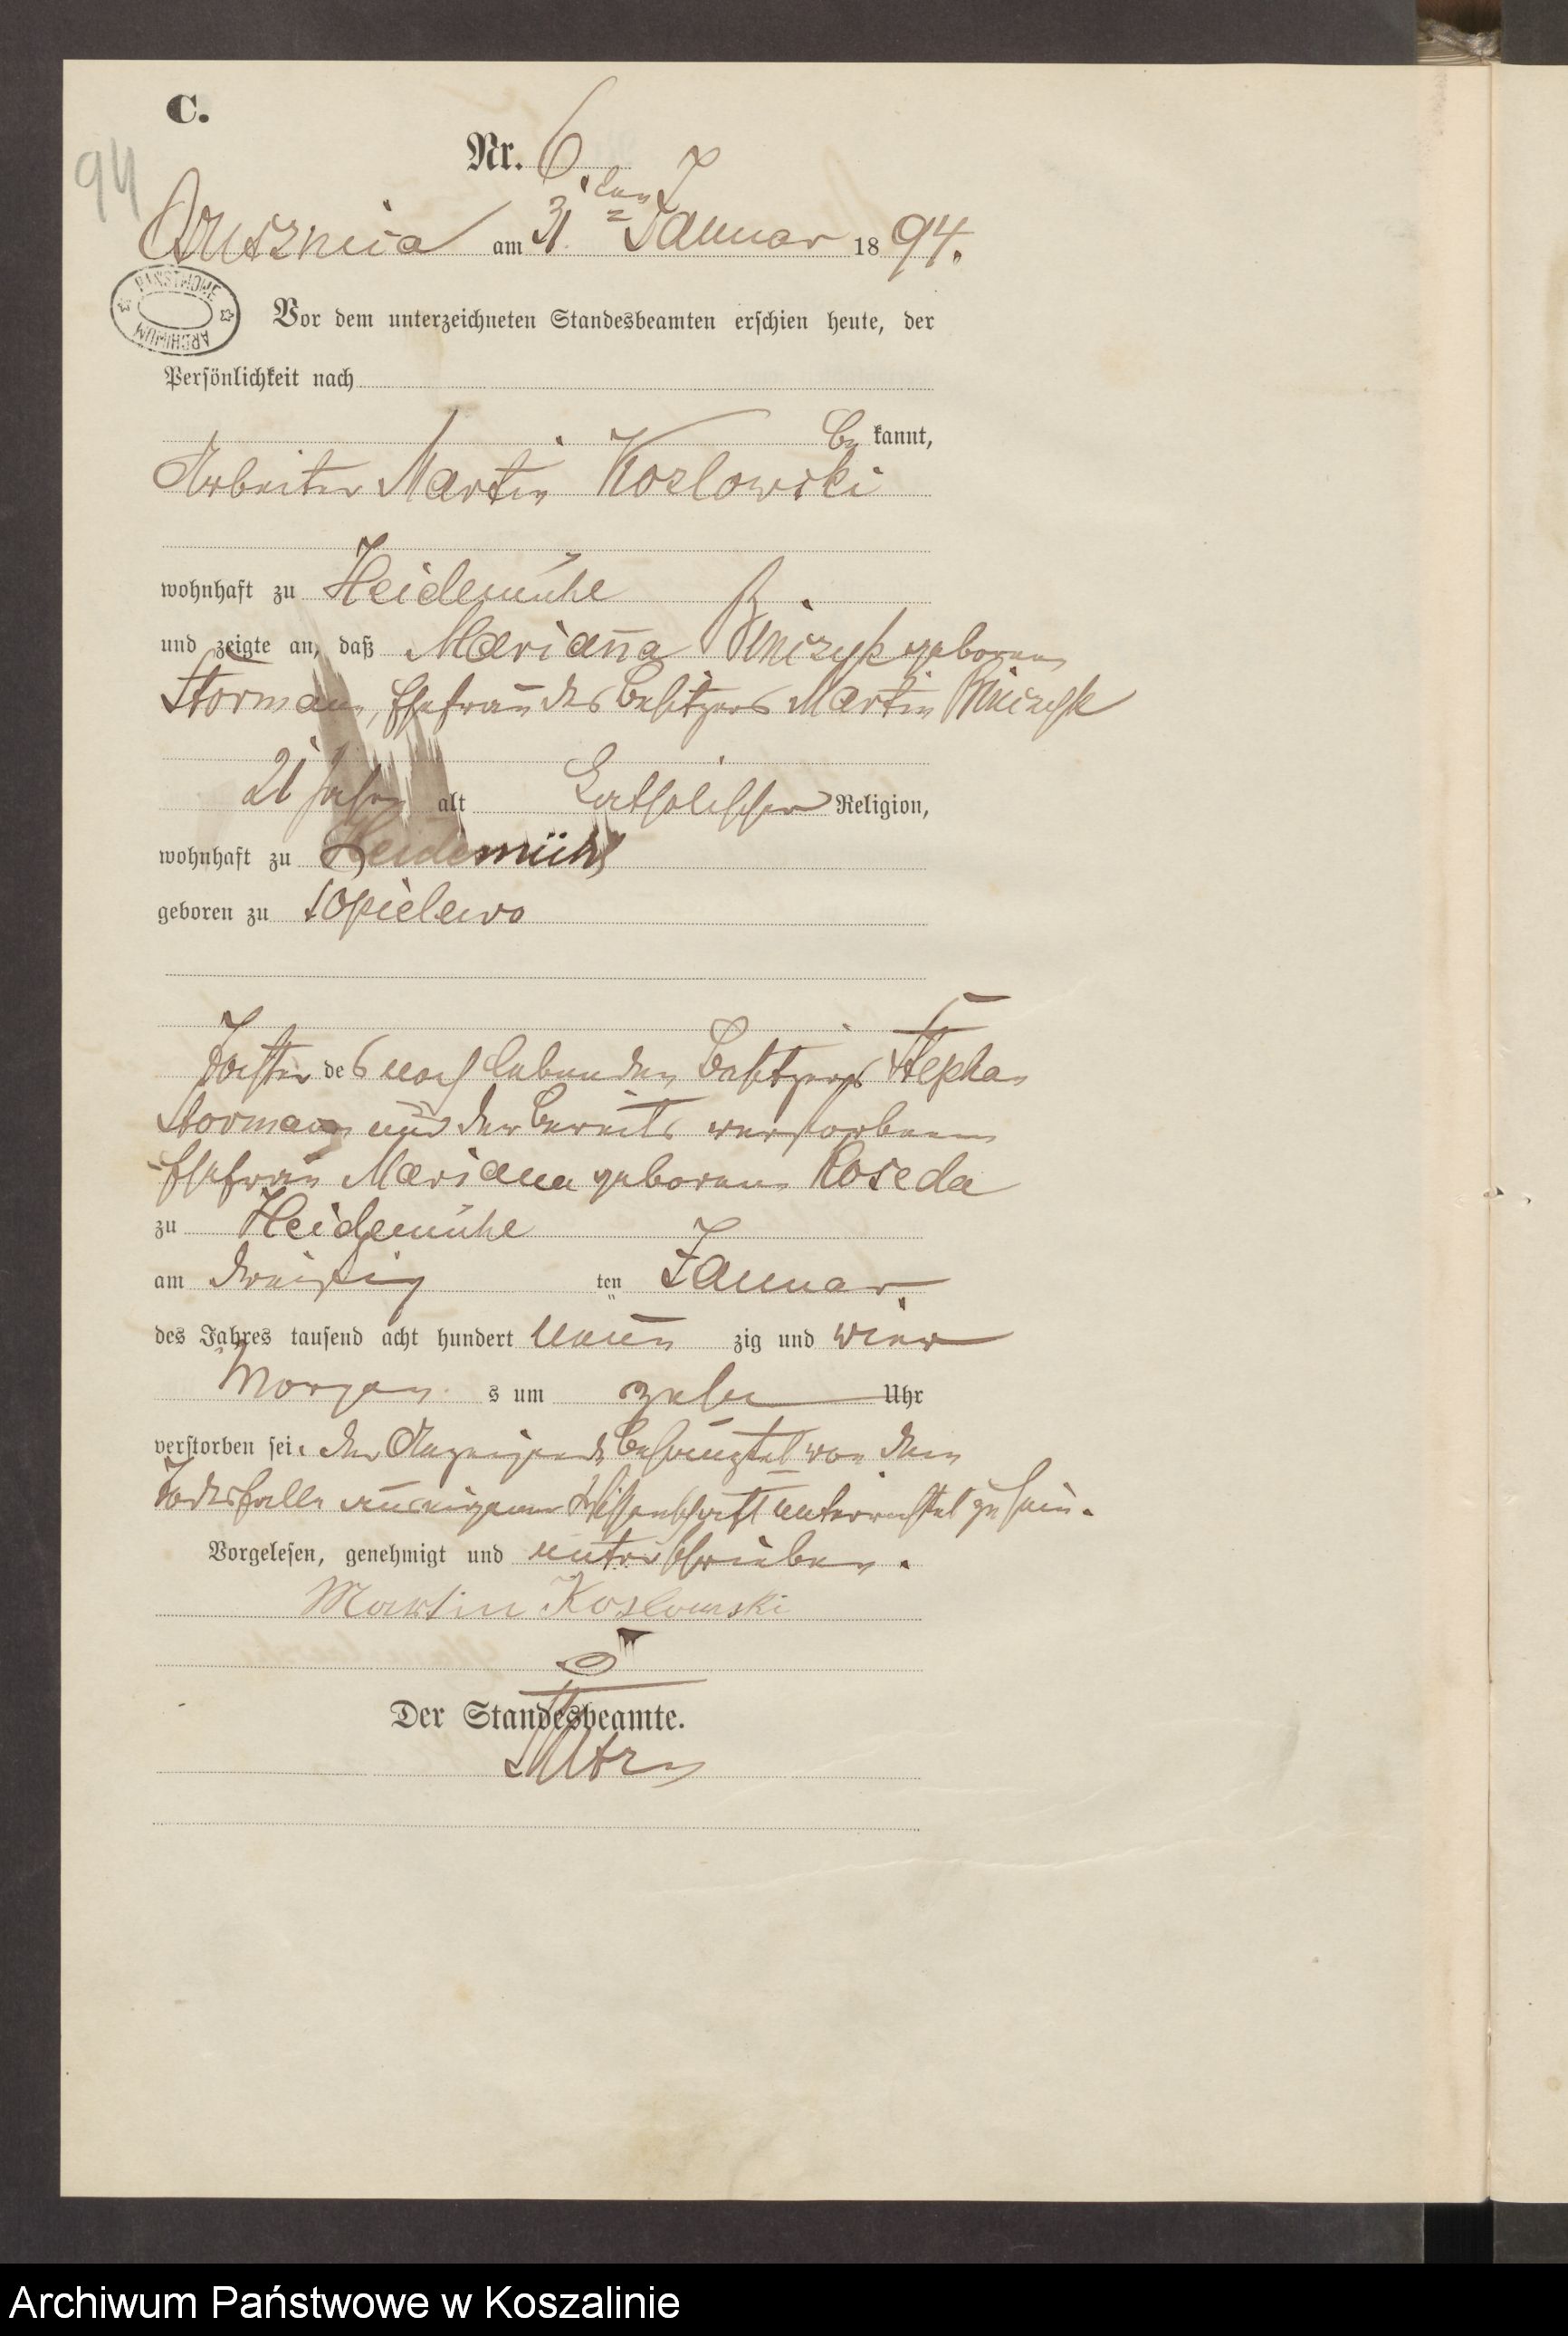 C.
94
Nr. 6.
am 31. ten Januar 1894.
PAŃSTWOWE ARCHIWUM
Vor dem unterzeichneten Standesbeamten erschien heute, der
Persönlichkeit nach
be kannt,
Arbeiter Martin Kozlowski
wohnhaft zu Heidemühl
und zeigte an, daß Marianna geborene
Storman, Ehefrau des Besitzers Martin
21 Jahre alt katholischer Religion,
wohnhaft zu Heidemühl
geboren zu
Tochter des noch lebenden Besitzers Stephan
Storman und der bereits verstorbenen
Ehefrau Mariana geborene
zu Heidemühl
am dreißig ten Januar
des Jahres tausend acht hundert neun zig und vier
Morgen s um zehn Uhr
verstorben sei. Der Anzeigende von dem
Todesfalle aus eigener Wissenschaft unterrichtet zu sein.
Vorgelesen, genehmigt und unterschrieben.
Martin Koslowski
Der Standesbeamte.
Archiwum Państwowe w Koszalinie